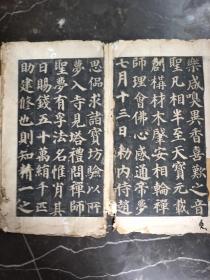 樂咸嗅異香喜歎之音
聖凡相半至天寶元載
創構材木肇安相輪禪
師理會佛心感通帝夢
七月十三日勑內侍趙
思偘求諸寶坊驗以所
夢入寺見塔禮問禪師
聖夢有孚法名惟肖其
日賜錢五十萬絹千匹
助建修也則知精一之